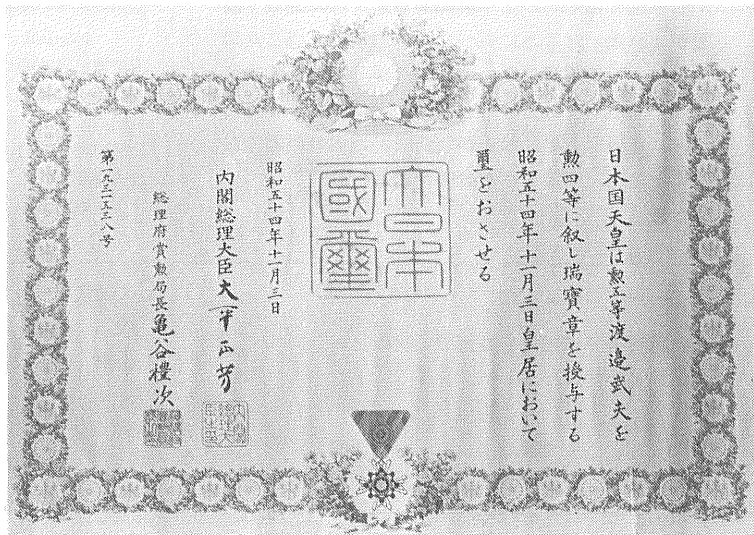 日本国天皇は勲五等渡邉武夫を
勲四等に叙し瑞寶章を授与する
昭和五十四年十一月三日皇居において
璽をおさせる
大日本國璽
昭和五十四年十一月三日
内閣総理大臣大平正芳
総理府賞勲局長亀谷禮次
第一九三一五三八号